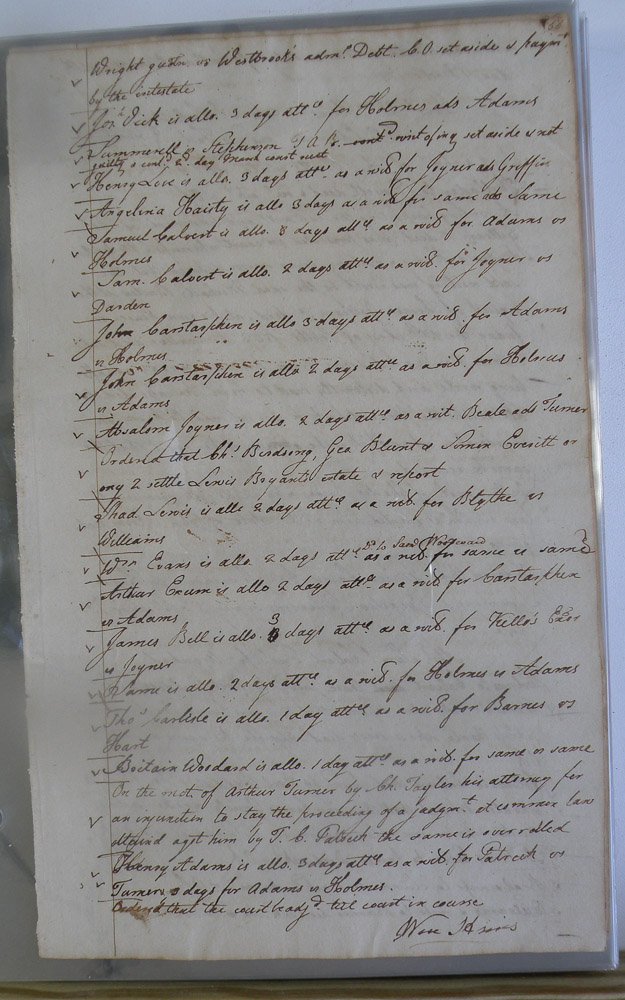 Wright guardn vs Westbrook's adml. Debt. C O set aside & paymt.
by the intestate
Jos. Vick is allo. 3 days attce for Holmes ads Adams
Summerell vs Stephenson T A B. writ of inq set aside & not
guilty & contd. 2d. day March court next
Henry Love is allo. 3 days attce as a wit. for Joyner ads Griffin
Angelina Hairty is allo 3 days as a wit. for same ads Same
Samuel Calvert is allo. 3 days attce as a wit. for Adams vs
Holmes
Sam. Calvert is allo. 2 days attce as a wit. for Joyner vs
Darden
John Carstarphen is allo 3 days attce as a wit. for Adams
vs Holmes
John Carstarphen is allo 2 days attce as a wit. for Holmes
vs. Adams
Absalom Joyner is allo. 2 days attce as a wit. Beale ads Turner
Ordered that Chs. Birdsong, Geo Blunt & Simon Everitt or
any 2 settle Lewis Bryants estate & report
Shad. Lewis is allo 2 days attce as a wit. for Blythe vs
Williams
to Saml. Woodward
Wm Evans is allo. 2 days attce as a wit for same vs same
Arthur Exum is allo 2 days attce as a wit for Carstarphen
vs Adams
James Bell is allo. 3 days attce as a wit. for Kello's Exor
vs Joyner
Same is allo. 2 days attce as a wit. for Holmes vs Adams
Thos. Carlisle is allo. 1 day attce as a wit. for Barnes vs
Hart
Britain Woodard is allo. 1 day attce as a wit. for same vs same
On the mot of Arthur Turner by Ch. Taylor his attorney for
an injunction to stay the proceeding of a judgmt. at common law
obtaind agst him by T. C. Patrick the same is overruled
Henry Adams is allo. 3 days attce as a wit. for Patrick vs
Turner 3 days for Adams vs Holmes.
Ordered that the court be adjd. till court in course